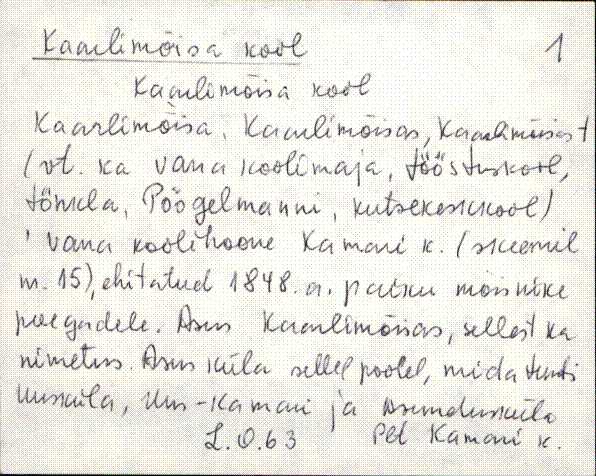 Kaarlimõisa kool 1
Kaarlimõisa kool
Kaarlimõisa, Kaarlimõisas, Kaarlimõisast
(vt. ka vana koolimaja, tööstuskool,
Põõgelmanni, kutsekeskkool)
' vana koolihoone Kamari k. (skeemil
nr. 15), ehitatud 1848. a. paiku mõisnike
poegadele. Asus Kaarlimõisas, sellest ka
nimetus. Asus küla sellel poolel, mida tunti
Uusküla, Uus-Kamari ja Asundusküla
L.O.63 Plt Kamari k.